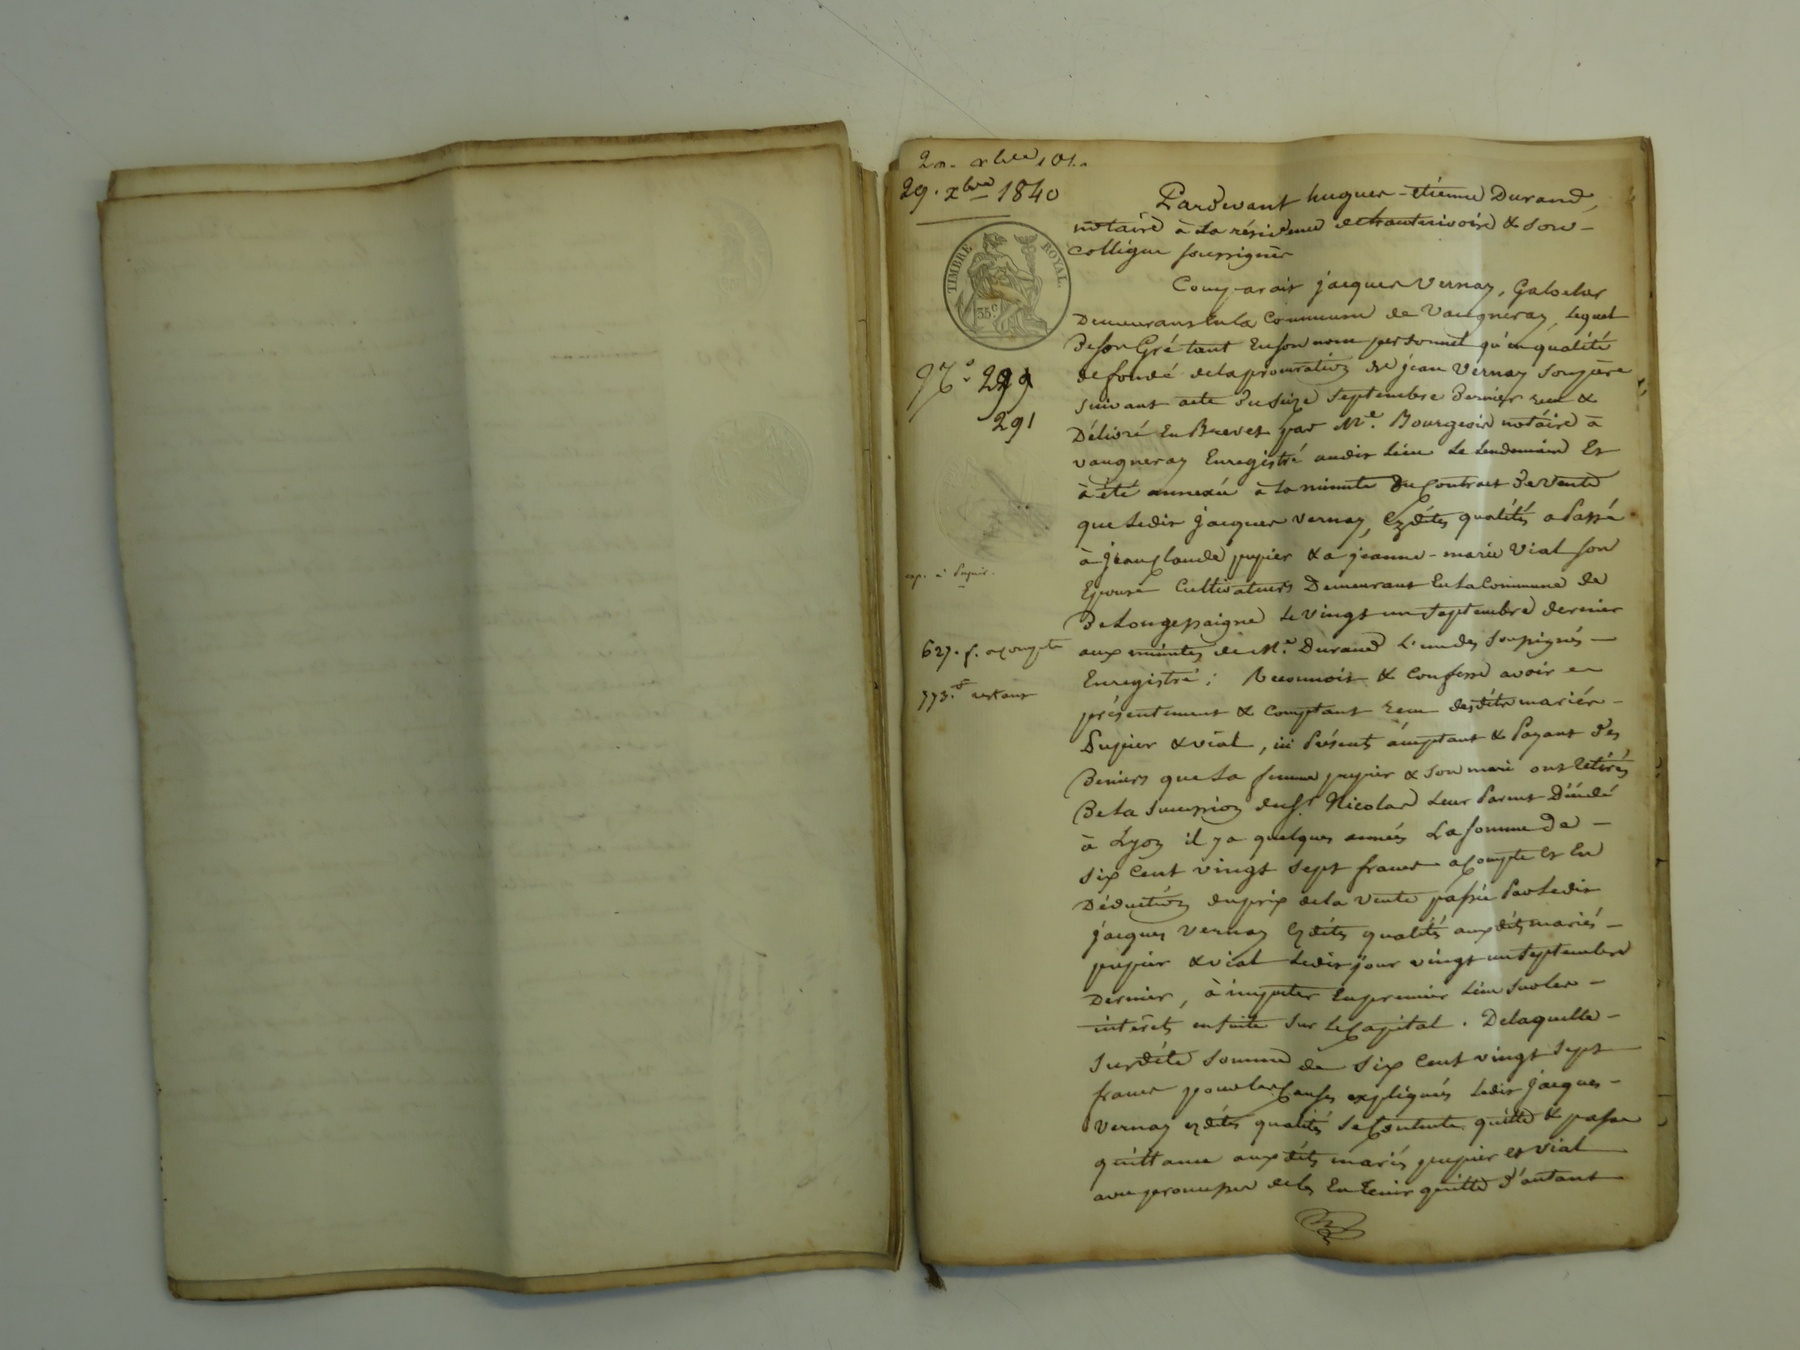 29. xbre 1840
TIMBRE ROYAL.
35c
No. 299
291
exp. à Pupier.
627. f. acompte
773. f restant
Pardevant hugues-étienne Durand,
notaire à la résidence de hauterivoire & son
collègue soussignés
Comparait jacques Vernay, Galocher
Demeurant En la Commune de Vaugneray, lequel
De son Gré tant En son nom personnel qu'en qualité
de fondé de la procuration de jean Vernay son père
suivant acte du seize septembre dernier reçu &
Délivré En Brevet par Me. Bourgeois notaire à
vaugneray Enregistré audit lieu le lendemain Et
à été annexée à la minute Du Contrat De vente
que Ledit jacques vernay, Ezdites qualités a Passé
à jean Claude pupier & a jeanne-marie Vial son
Epouse Cultivateurs Demeurant En La Commune de
De Longessaigne le vingt un septembre dernier
aux minutes de Me. Durand l'un des soussignés
Enregistré ; Reconnoit & Confesse avoir eu
présentement & Comptant reçu desdits mariés
Pupier & vial, ici Présents acceptant & Payant des
Deniers que La femme pupier & son mari ont retirés
De La succession du Sr. Nicolas Leur Parent Décédé
à Lyon il y a quelques années La somme De
six Cent vingt sept francs acompte Et En
Déduction du prix de la Vente passée Par Ledit
jacques Vernay Ezdites qualités auxdits mariés
pupier & vial Ledit jour vingt un septembre
Dernier, à imputer En premier Lieu sur les
intérêts ensuite sur le Capital. De laquelle
susdite somme de six Cent vingt sept
francs pour les Causes expliquées Ledit jacques
Vernay ezdites qualités se Contente quitte & passe
quittance auxdits mariés pupier et vial
avec promesse de les En tenir quitte d'autant